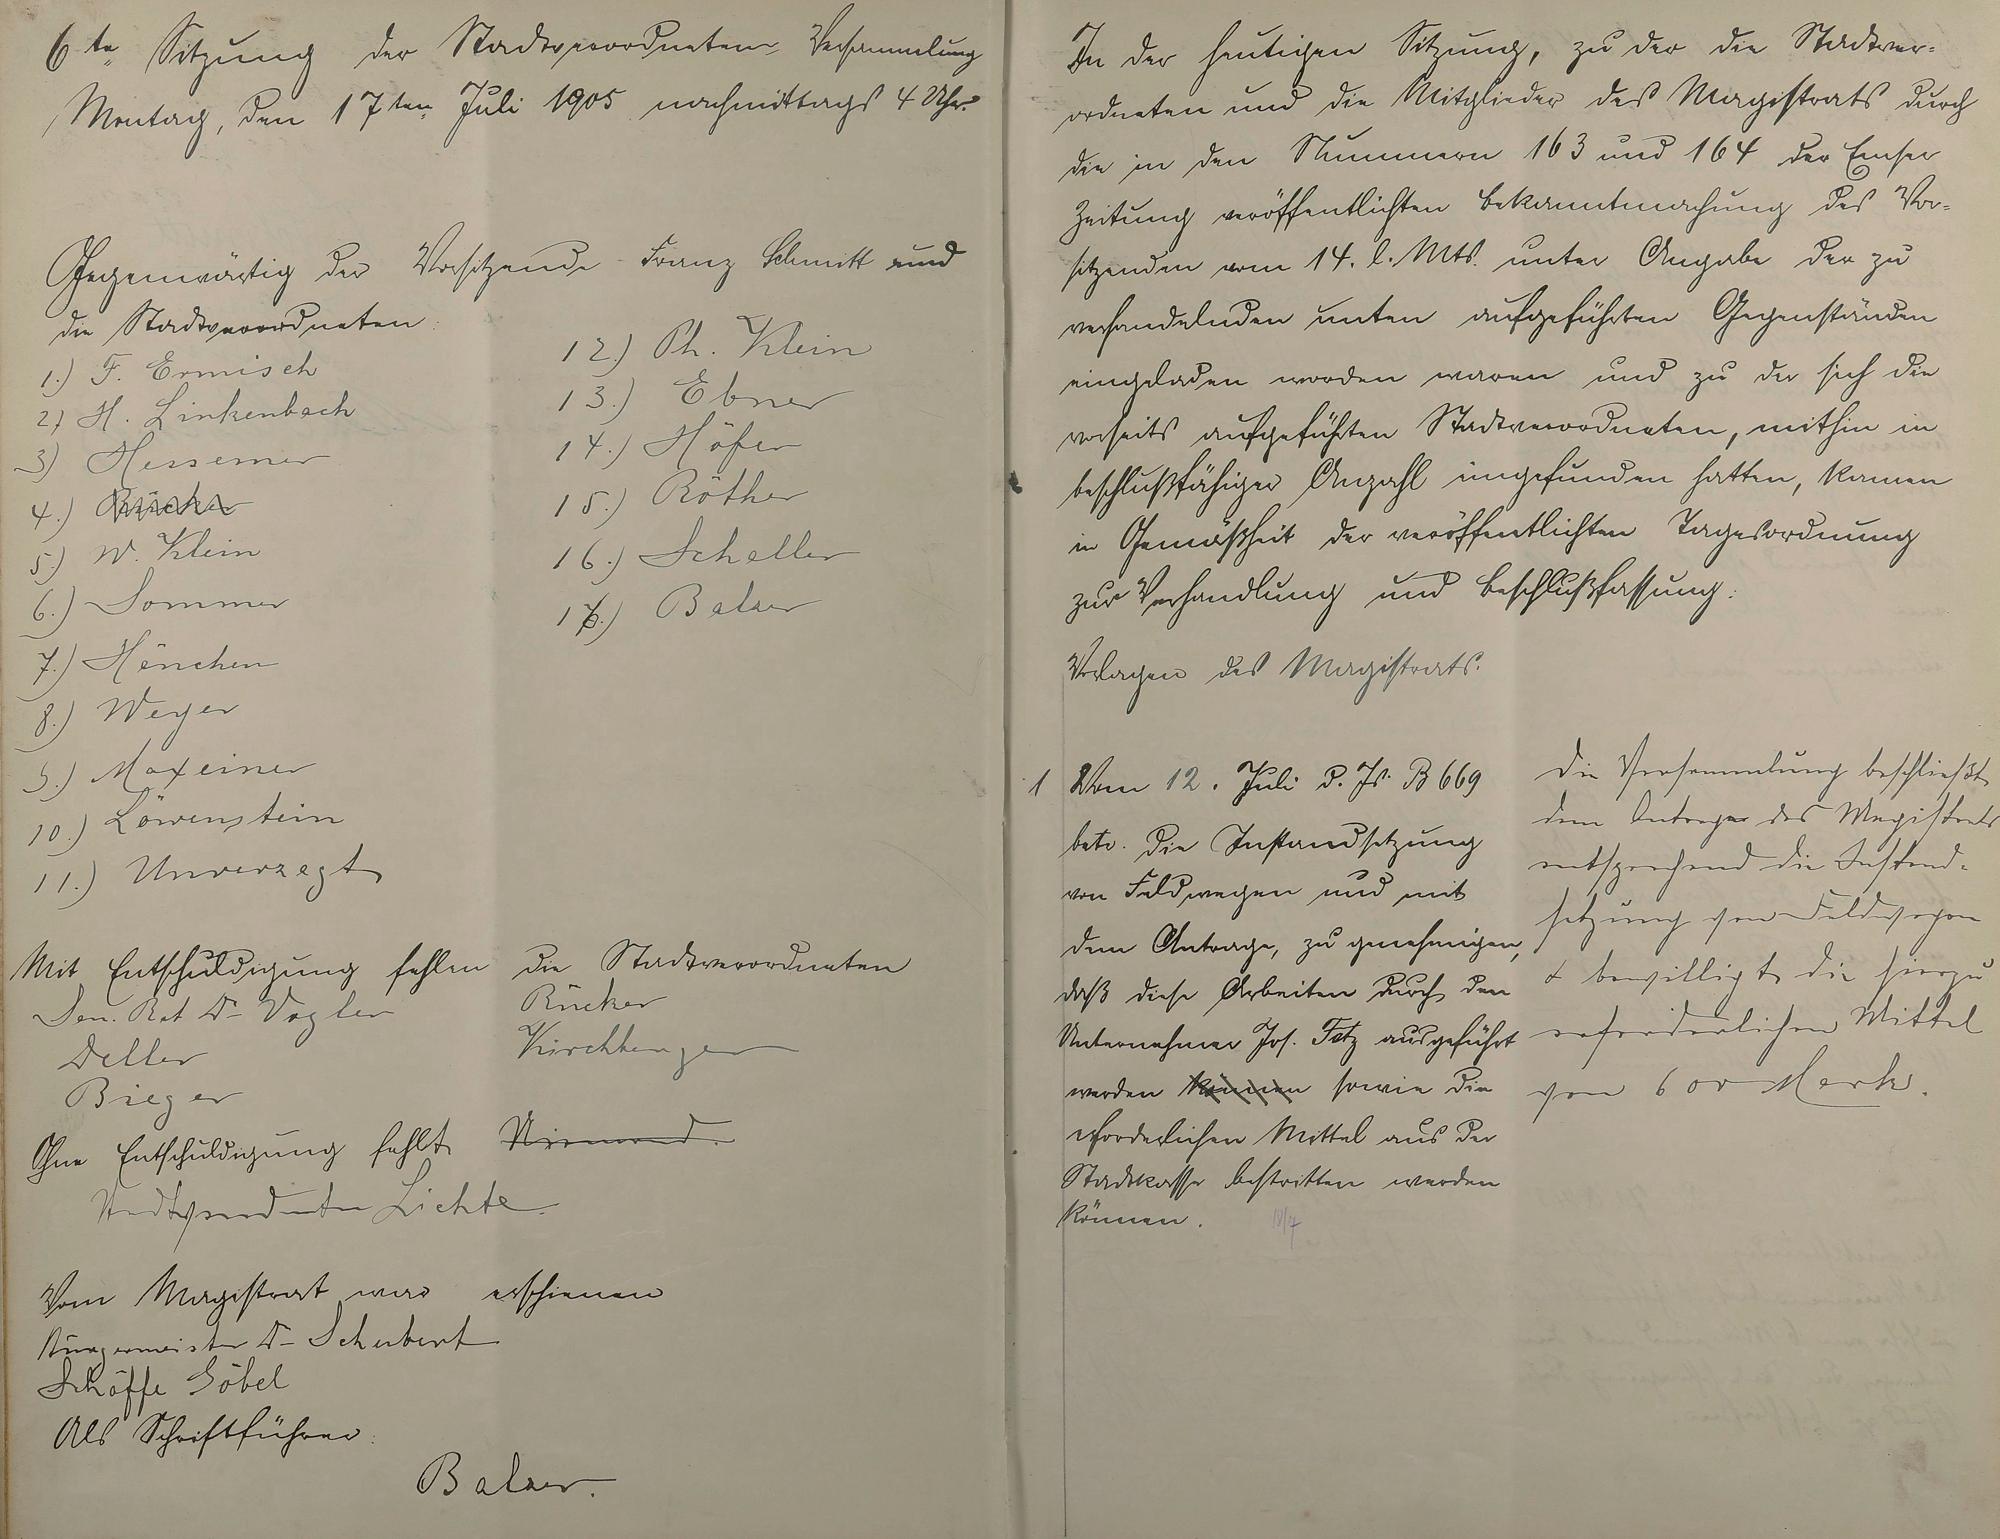 6te Sitzung der Stadtverordneten-Versammlung
Montag, den 17ten Juli 1905 nachmittags 4 Uhr.
Gegenwärtig der Vorsitzende Franz Schmitt und
die Stadtverordneten:
1.) F. Ermisch
2) H. Linkenbach
3) Hessemer
4.) Rücker
5.) W. Klein
6.) Sommer
7.) Hënchen
8.) Weyer
9.) Maxeiner
10.) Löwenstein
11.) Unverzagt
12.) Ph. Klein
13.) Ebner
14.) Höfer
15.) Röther
16.) Scheller
17.) Balzer
Mit Entschuldigung fehlen die Stadtverordneten
San. Rat Dr Vogler
Deller
Bieger
Rücker
Kirchberger
Ohne Entschuldigung fehlt Niemand.
Stadtverordneter Lichte
Vom Magistrat war erschienen
Bürgermeister Dr Schubert
Schöffe Göbel
Als Schriftführer:
Balzer.
In der heutigen Sitzung, zu der die Stadtver-
ordneten und die Mitglieder des Magistrats durch
die in den Nummern 163 und 164 der Emser
Zeitung veröffentlichten Bekanntmachung des Vor-
sitzenden vom 14. l. Mts. unter Angabe der zu
verhandelnden unten aufgeführten Gegenständen
eingeladen worden waren und zu der sich die
vorseits aufgeführten Stadtverordneten, mithin in
beschlußfähiger Anzahl eingefunden hatten, kamen
in Gemäßheit der veröffentlichten Tagesordnung
zur Verhandlung und Beschlußfassung:
Vorlagen des Magistrats.
1 Vom 12. Juli d. Js. B 669
betr. die Instandsetzung
von Feldwegen und mit
dem Antrage, zu genehmigen,
daß diese Arbeiten durch den
Unternehmer Jos. Fetz ausgeführt
werden können sowie die
erforderlichen Mittel aus der
Stadtkasse bestritten werden
können.
18/7
Die Versammlung beschließt
dem Antrage des Magistrats
entsprechend die Instand-
setzung von Feldwegen
& bewilligt die hierzu
erforderlichen Mittel
von 600 Mark.